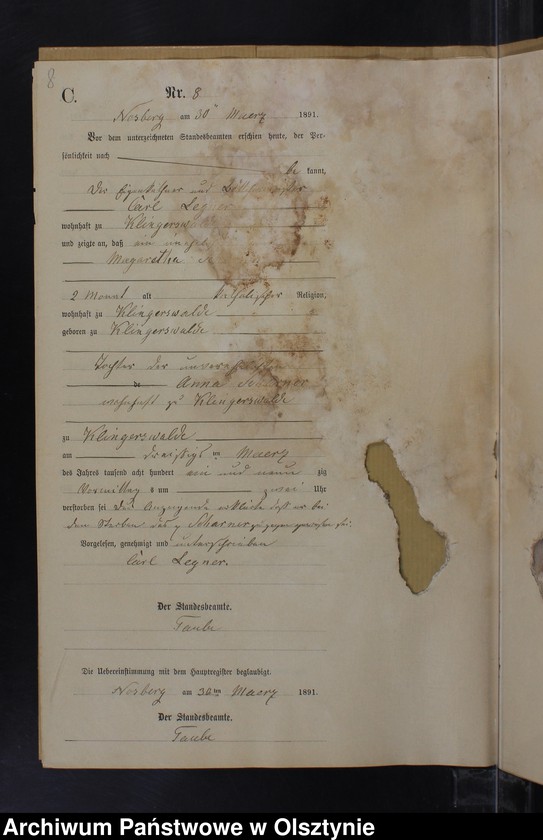 8
C.
Nr. 8
Nosberg am 30ten Maerz 1891.
Vor dem unterzeichneten Standesbeamten erschien heute, der Per-
sönlichkeit nach
be kannt,
Der Eigenkäthner und
Carl Legner
wohnhaft zu Klingerswalde
und zeigte an, daß ein unehel
Magaretha
2 Monat alt katholischer Religion,
wohnhaft zu Klingerswalde
geboren zu Klingerswalde
Tochter der unverehelichten
Anna Scharner
wohnhaft zu Klingerswalde
zu Klingerswalde
am dreißigsten Maerz
des Jahres tausend acht hundert ein und neun zig
Vormittag s um zwei Uhr
verstorben sei Der Anzeigende erklärte daß er bei
dem Sterben der Scharner zugegen gewesen sei.
Vorgelesen, genehmigt und unterschrieben
Carl Legner.
Der Standesbeamte.
Taube
Die Uebereinstimmung mit dem Hauptregister beglaubigt.
Nosberg am 30ten Maerz 1891.
Der Standesbeamte.
Taube
Archiwum Państwowe w Olsztynie